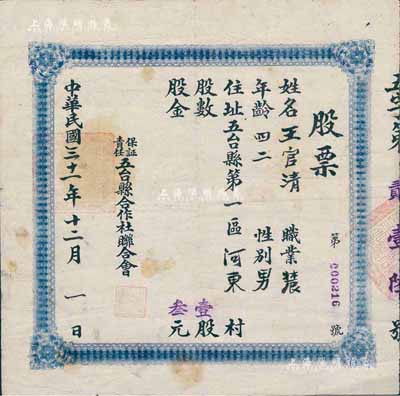 股票
第 000216 號
姓名 王官清 職業 農
年齡 四二 性別 男
住址 五台縣第一區河東村
股數 壹股
股金 叁元
保証責任 五台縣合作社聯合會
中華民國三十一年十二月一日